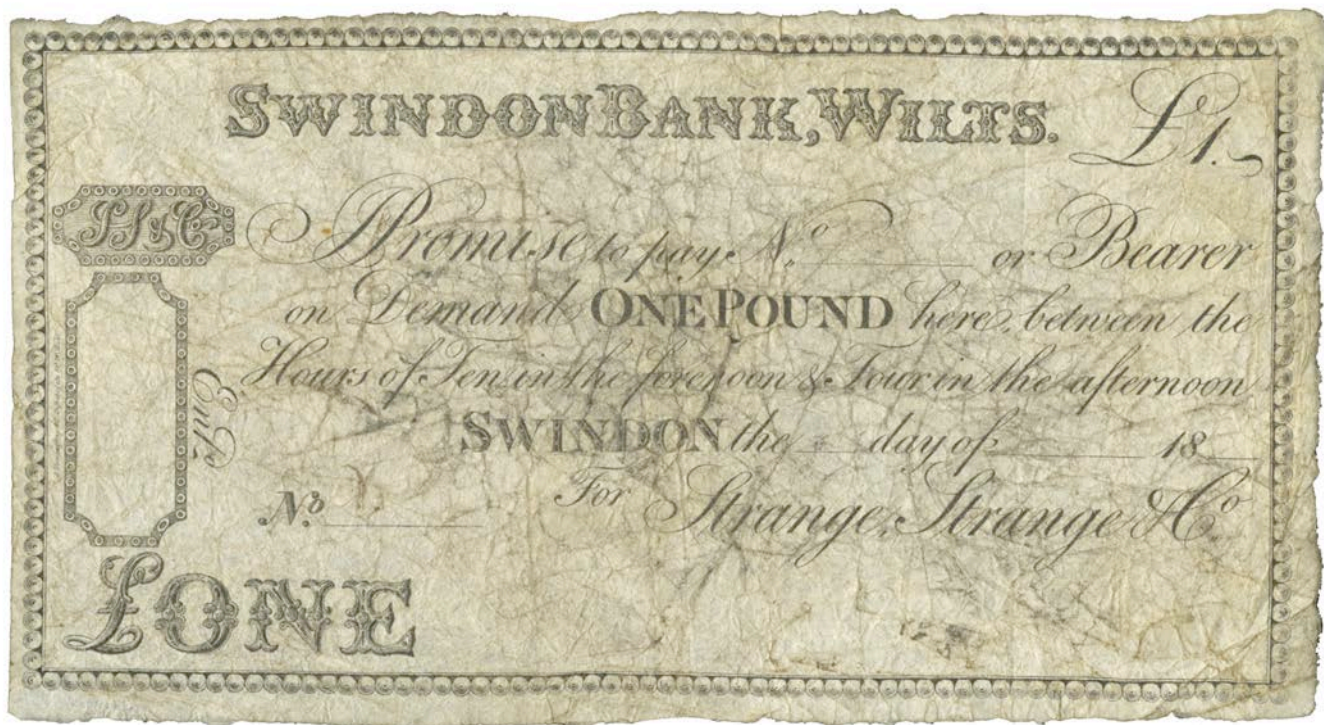 SWINDON BANK, WILTS. £1.
SS&Co
I Promise to pay No. or Bearer
on Demand ONE POUND here, between the
Hours of Ten in the forenoon & Four in the afternoon
Entd.
SWINDON the day of 18
No. For Strange, Strange & Co
£ONE